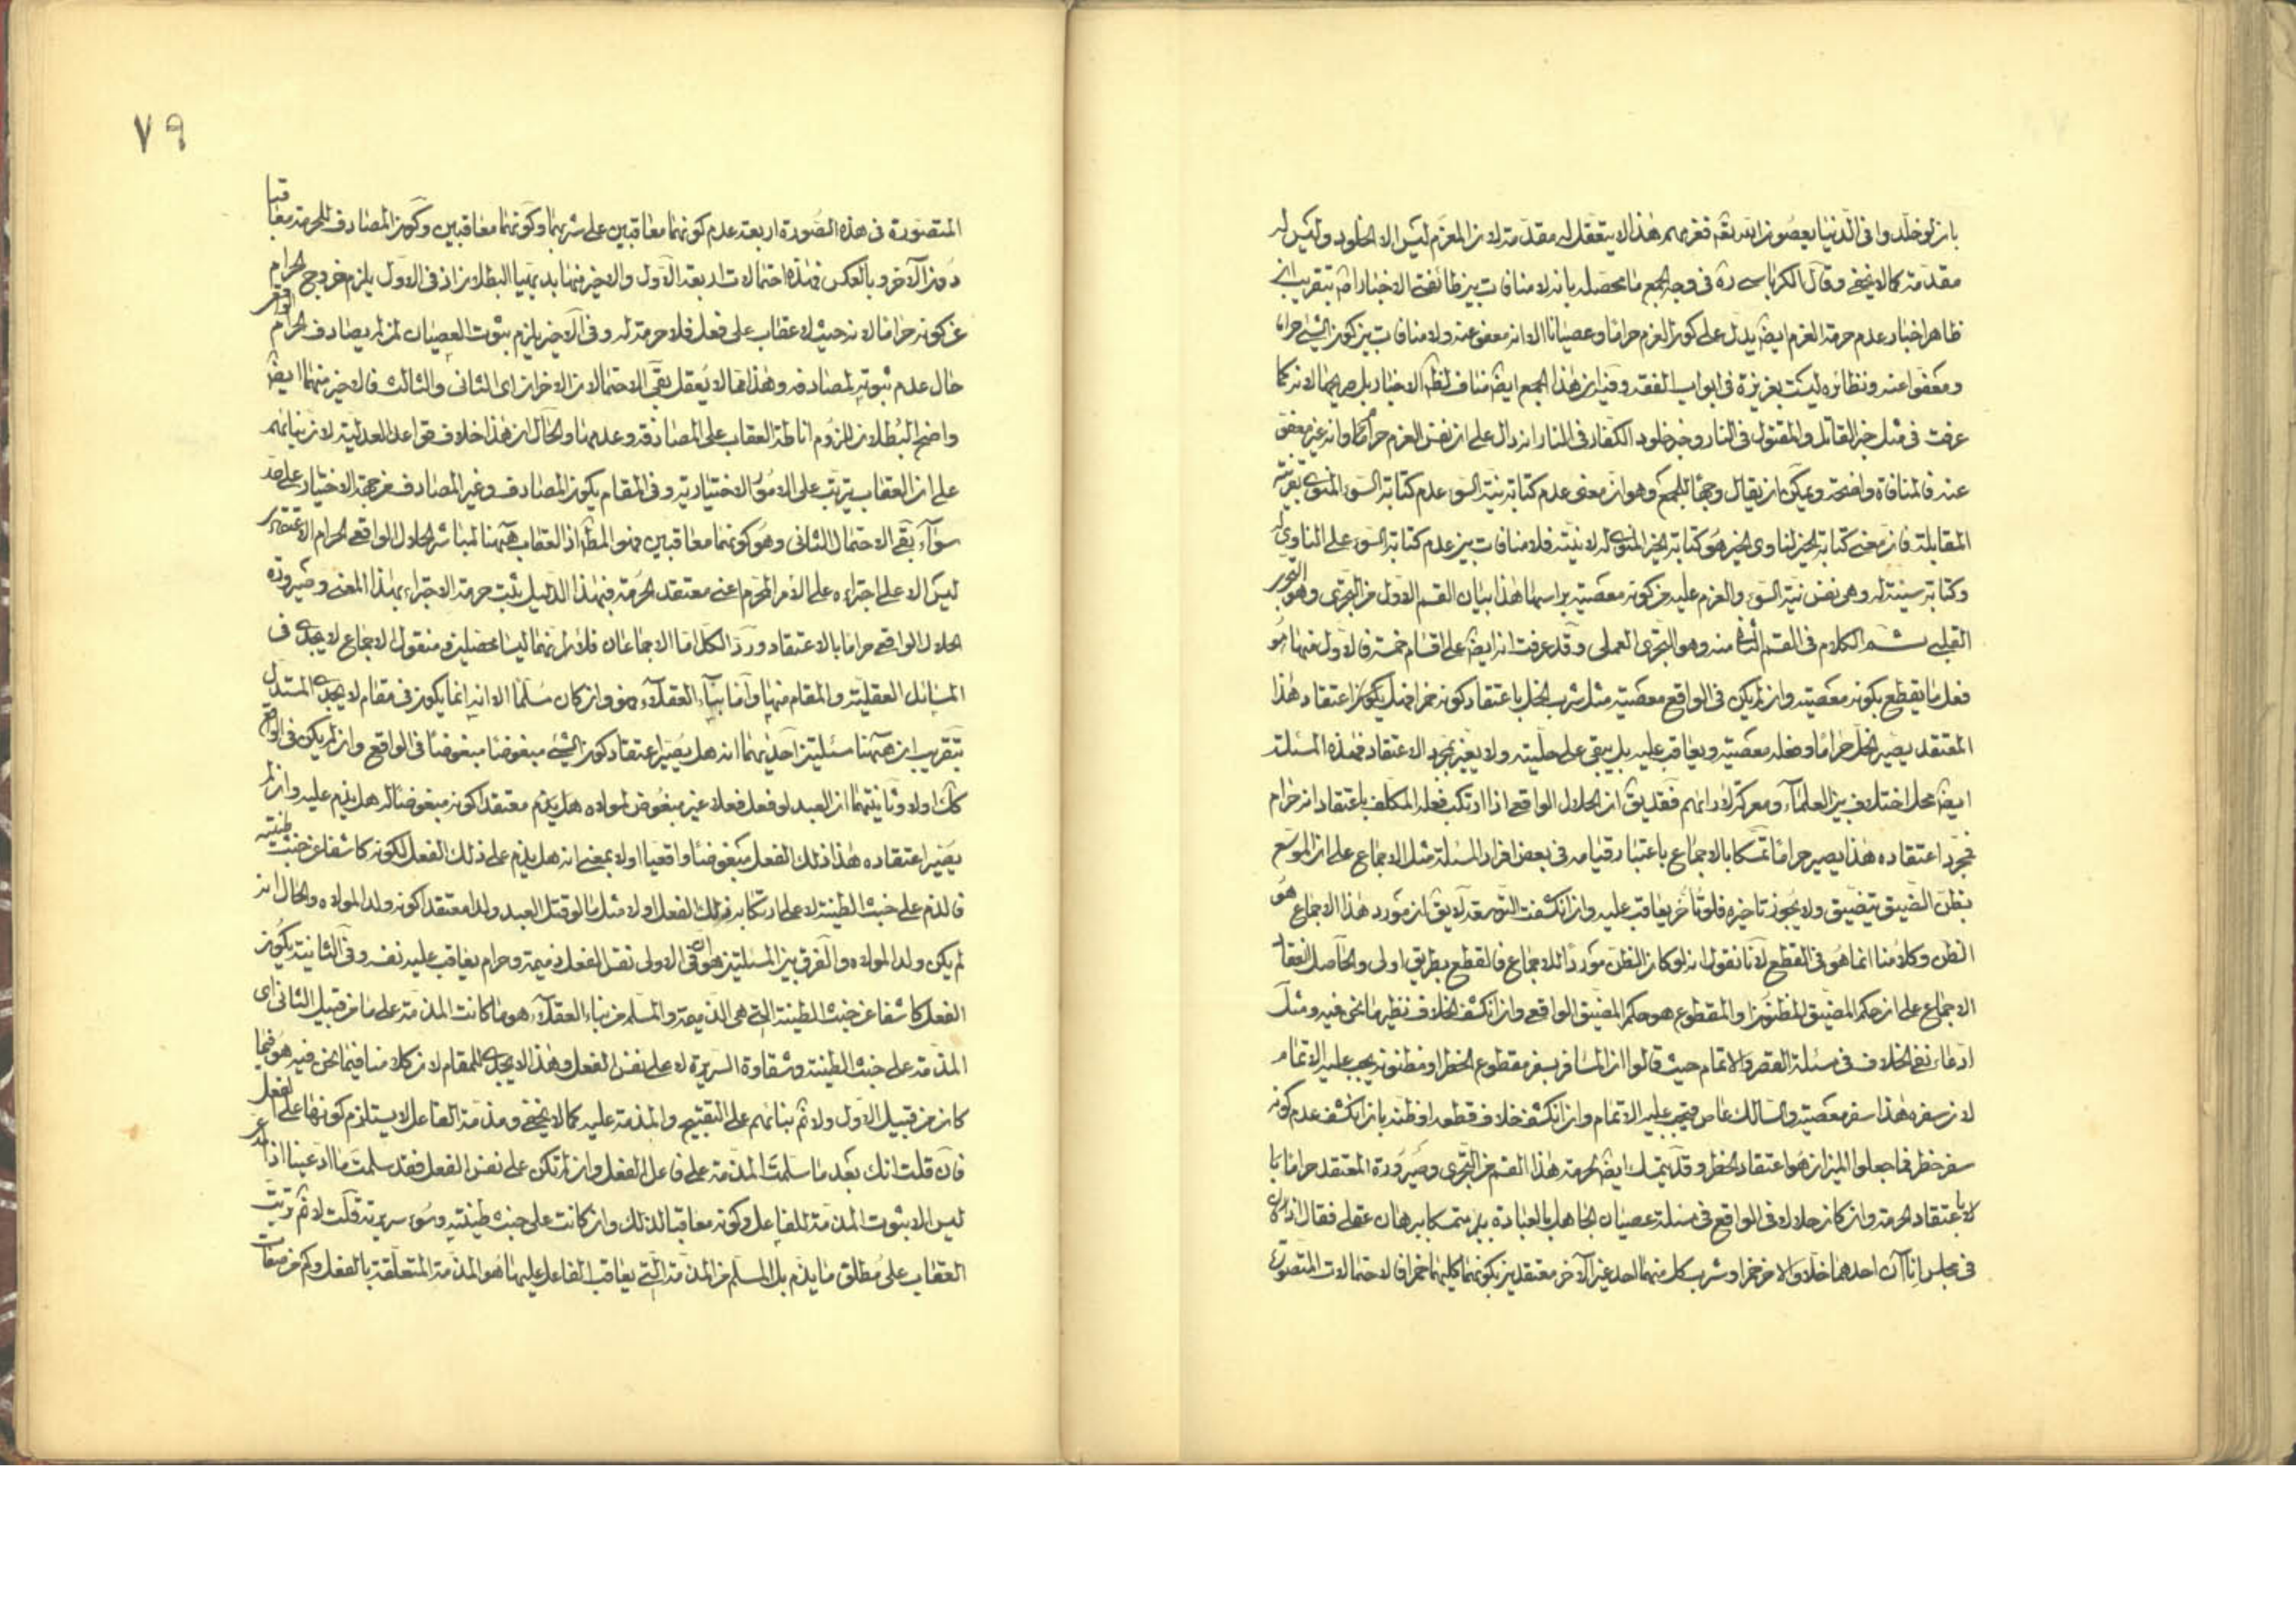 بان لو خلدوا فى الدنيا يعصون الله تعه فعزمهم هذا لا يتعقل له مقدمة لان المعزم ليس الا الخلود وليس له
مقدمة كما لا يخفى وقال الكرباسى ره فى وجه الجمع ما محصله بانه لا منافات بين طائفتى الاخبار اصه بتقريب ان
ظاهر اخبار عدم حرمة العزم ايضه يدل على كون العزم حراما وعصيانا الا انه معفو عنه ولا منافات بين كون الشئ حراما
ومعفوا عنه ونظائره ليست بعزيزة فى ابواب الفقه وفيه ان هذا الجمع ايضه مناف لظه الاخبار بل صريحها لانه كما
عرفت فى مثل خبر القاتل والمقتول فى النار وخبر خلود الكفار فى النار انه دال على ان نفس العزم حرام وانه غير معفو
عنه فالمنافاة واضحة ويمكن ان يقال وجها للجمع وهو ان معنى عدم كتابة نية السوء عدم كتابة السوء المنوى بقرينة
المقابلة فان معنى كتابة الخير لناوى الخير هو كتابة الخير المنوى له لا نيته فلا منافات بين عدم كتابة السوء على الناوى له
وكتابة سيئة له وهى نفس نية السوء والعزم عليه من كونه معصية براسها هذا بيان القسم الاول من التجرى وهو التجرى
القلبى ثم الكلام فى القسم الثانى منه وهو التجرى العملى وقد عرفت انه ايضه على اقسام خمسة فالاول منها هو
فعل ما يقطع بكونه معصية وان لم يكن فى الواقع معصية مثل شرب الخل باعتقاد كونه خمرا فهل يكون اعتقاد هذا
المعتقد يصير الخل حراما وفعله معصية ويعاقب عليه بل يبقى على حليته ولا يغير بمجرد الاعتقاد فهذه المسئلة
ايضه محل اختلاف بين العلماء ومعركة لارائهم فقد يقه ان الحلال الواقعى اذا ارتكب فعله المكلف باعتقاد انه حرام
فبمجرد اعتقاده هذا يصير حراما تمسكا بالاجماع باعتبار قيامه فى بعض افراد المسئلة مثل الاجماع على ان الموسع
بظن الضيق يتضيق ولا يجوز تاخيره فلو تاخر يعاقب عليه وان انكشفت التوسعة لا يقه ان مورد هذا الاجماع هو
الظن وكلامنا انما هو فى القطع لانا نقول انه لو كان الظن موردا للاجماع فالقطع بطريق اولى والحاصل انعقاد
الاجماع على ان حكم المضيق المظنون او المقطوع هو حكم المضيق الواقعى وان انكشف الخلاف نظير ما نحن فيه ومثله
ادعاء نفى الخلاف فى مسئلة القصر والاتمام حيث قالوا ان المسافر بسفر مقطوع الخطر او مظنونه يجب عليه الاتمام
لان سفره هذا سفر معصية والسالك عاص فيجب عليه الاتمام وان انكشف خلاف قطعه او ظنه بان انكشف عدم كونه
سفر خطر فاجعلوا الميزان هو اعتقاد الخطر وقد يتمسك ايضه لحرمة هذا القسم من التجرى وصيرورة المعتقد حراما با
لاعتقاد الحرمة وان كان حلالا فى الواقع فى مسئلة عصيان الجاهل بالعبادة متمسكا ببرهان عقلى فقال اذا كان
فى مجلس اناآن احدهما خلا والاخر خمرا وشرب كل منهما احد غير الآخر معتقدين بكونهما كليهما خمرا فالاحتمالات المتصورة
٧٩
المتصورة فى هذه الصورة اربعة عدم كونهما معاقبين على شربهما وكونهما معاقبين وكون المصادف للحرمة معاقبا
دون الآخر وبالعكس فهذه احتمالات اربعة الاول والاخير منها بديهيا البطلان اذ فى الاول يلزم خروج الحرام الواقعى
عن كونه حراما لانه حيث لا عقاب على فعله فلا حرمة له وفى الاخير يلزم ثبوت العصيان لمن لم يصادف الحرام
حال عدم ثبوته لمصادفه وهذا مما لا يعقل بقى الاحتمالان الاخران اى الثانى والثالث فالاخير منهما ايضه
واضح البطلان للزوم اناطة العقاب على المصادفة وعدمها والحال ان هذا خلاف قواعد العدلية لان بنائهم
على ان العقاب يترتب على الامور الاختيارية وفى المقام يكون المصادف وغير المصادف من جهة الاختيار على حد
سوآء بقى الاحتمال الثانى وهو كونهما معاقبين فهو المطه اذ العقاب ههنا لمباشر الحلال الواقعى الحرام الاعتقادى
ليس الا على اجترائه على الامر المحرم اعنى معتقد الحرمة فبهذا الدليل يثبت حرمة الاجتراء بهذا المعنى وصيرورة
الحلال الواقعى حراما بالاعتقاد ورد الكل اما الاجماعان فلانهما ليسا محصلين ومنقول الاجماع لا يجدى فى
المسائل العقلية والمقام منها واما بناء العقلاء فهو وان كان مسلما الا انه انما يكون فى مقام لا يجدى المستدل
بتقريب ان ههنا مسئلتين احديهما انه هل يصير اعتقاد كون الشئ مبغوضا مبغوضا فى الواقع وان لم يكن فى الواقع
كك اولا وثانيتهما ان العبد لو فعل فعلا غير مبغوض لمولاه هل يذم معتقدا كونه مبغوضا له هل يذم عليه وان لم
يصير اعتقاده هذا ذلك الفعل مبغوضا واقعيا اولا بمعنى انه هل يذم على ذلك الفعل لكونه كاشفا عن خبث طينته
فالذم على خبث الطينة لا على ارتكابه ذلك الفعل اولا مثل ما لو قتل العبد ولدا معتقدا كونه ولد المولاه والحال انه
لم يكن ولد المولاه والفرق بين المسئلتين هو ان فى الاولى نفس الفعل ذميمة وحرام يعاقب عليه نفسه وفى الثانية يكون
الفعل كاشفا عن خبث الطينة التى هى الذميمة والمسلم من بناء العقلاء هو ما كانت المذمة على ما من قبيل الثانى اى
المذمة على خبث الطينة وشقاوة السريرة لا على نفس الفعل وهذا لا يجدى للمقام لان كلامنا فيما نحن فيه هو فيما
كان من قبيل الاول ولا ثم بنائهم على التقبيح والمذمة عليه كما لا يخفى ومذمة الفاعل لا يستلزم كونها على الفعل
فان قلت انك بعد ما سلمت المذمة على فاعل الفعل وان لم تكن على نفس الفعل فقد سلمت ما ادعينا اذ المدعى
ليس الا بثبوت المذمة للفاعل وكونه معاقبا لذلك وان كانت على خبث طينته وسوء سريرته قلت لا ثم ترتب
العقاب على مطلق ما يذم بل المسلم من المذمة التى يعاقب الفاعل عليها هو المذمة المتعلقة بالفعل وكم من صفات